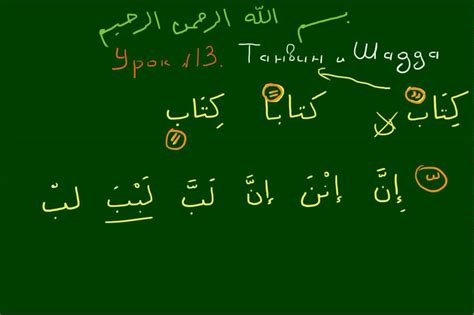 بسم الله الرحمن الرحيم
Урок №13. Танвин и Шадда
كِتَابٌ كتابًا كِتَابٍ
ّ إِنَّ إنْنَ إنَّ لَبَّ لَبْبَ لبّ